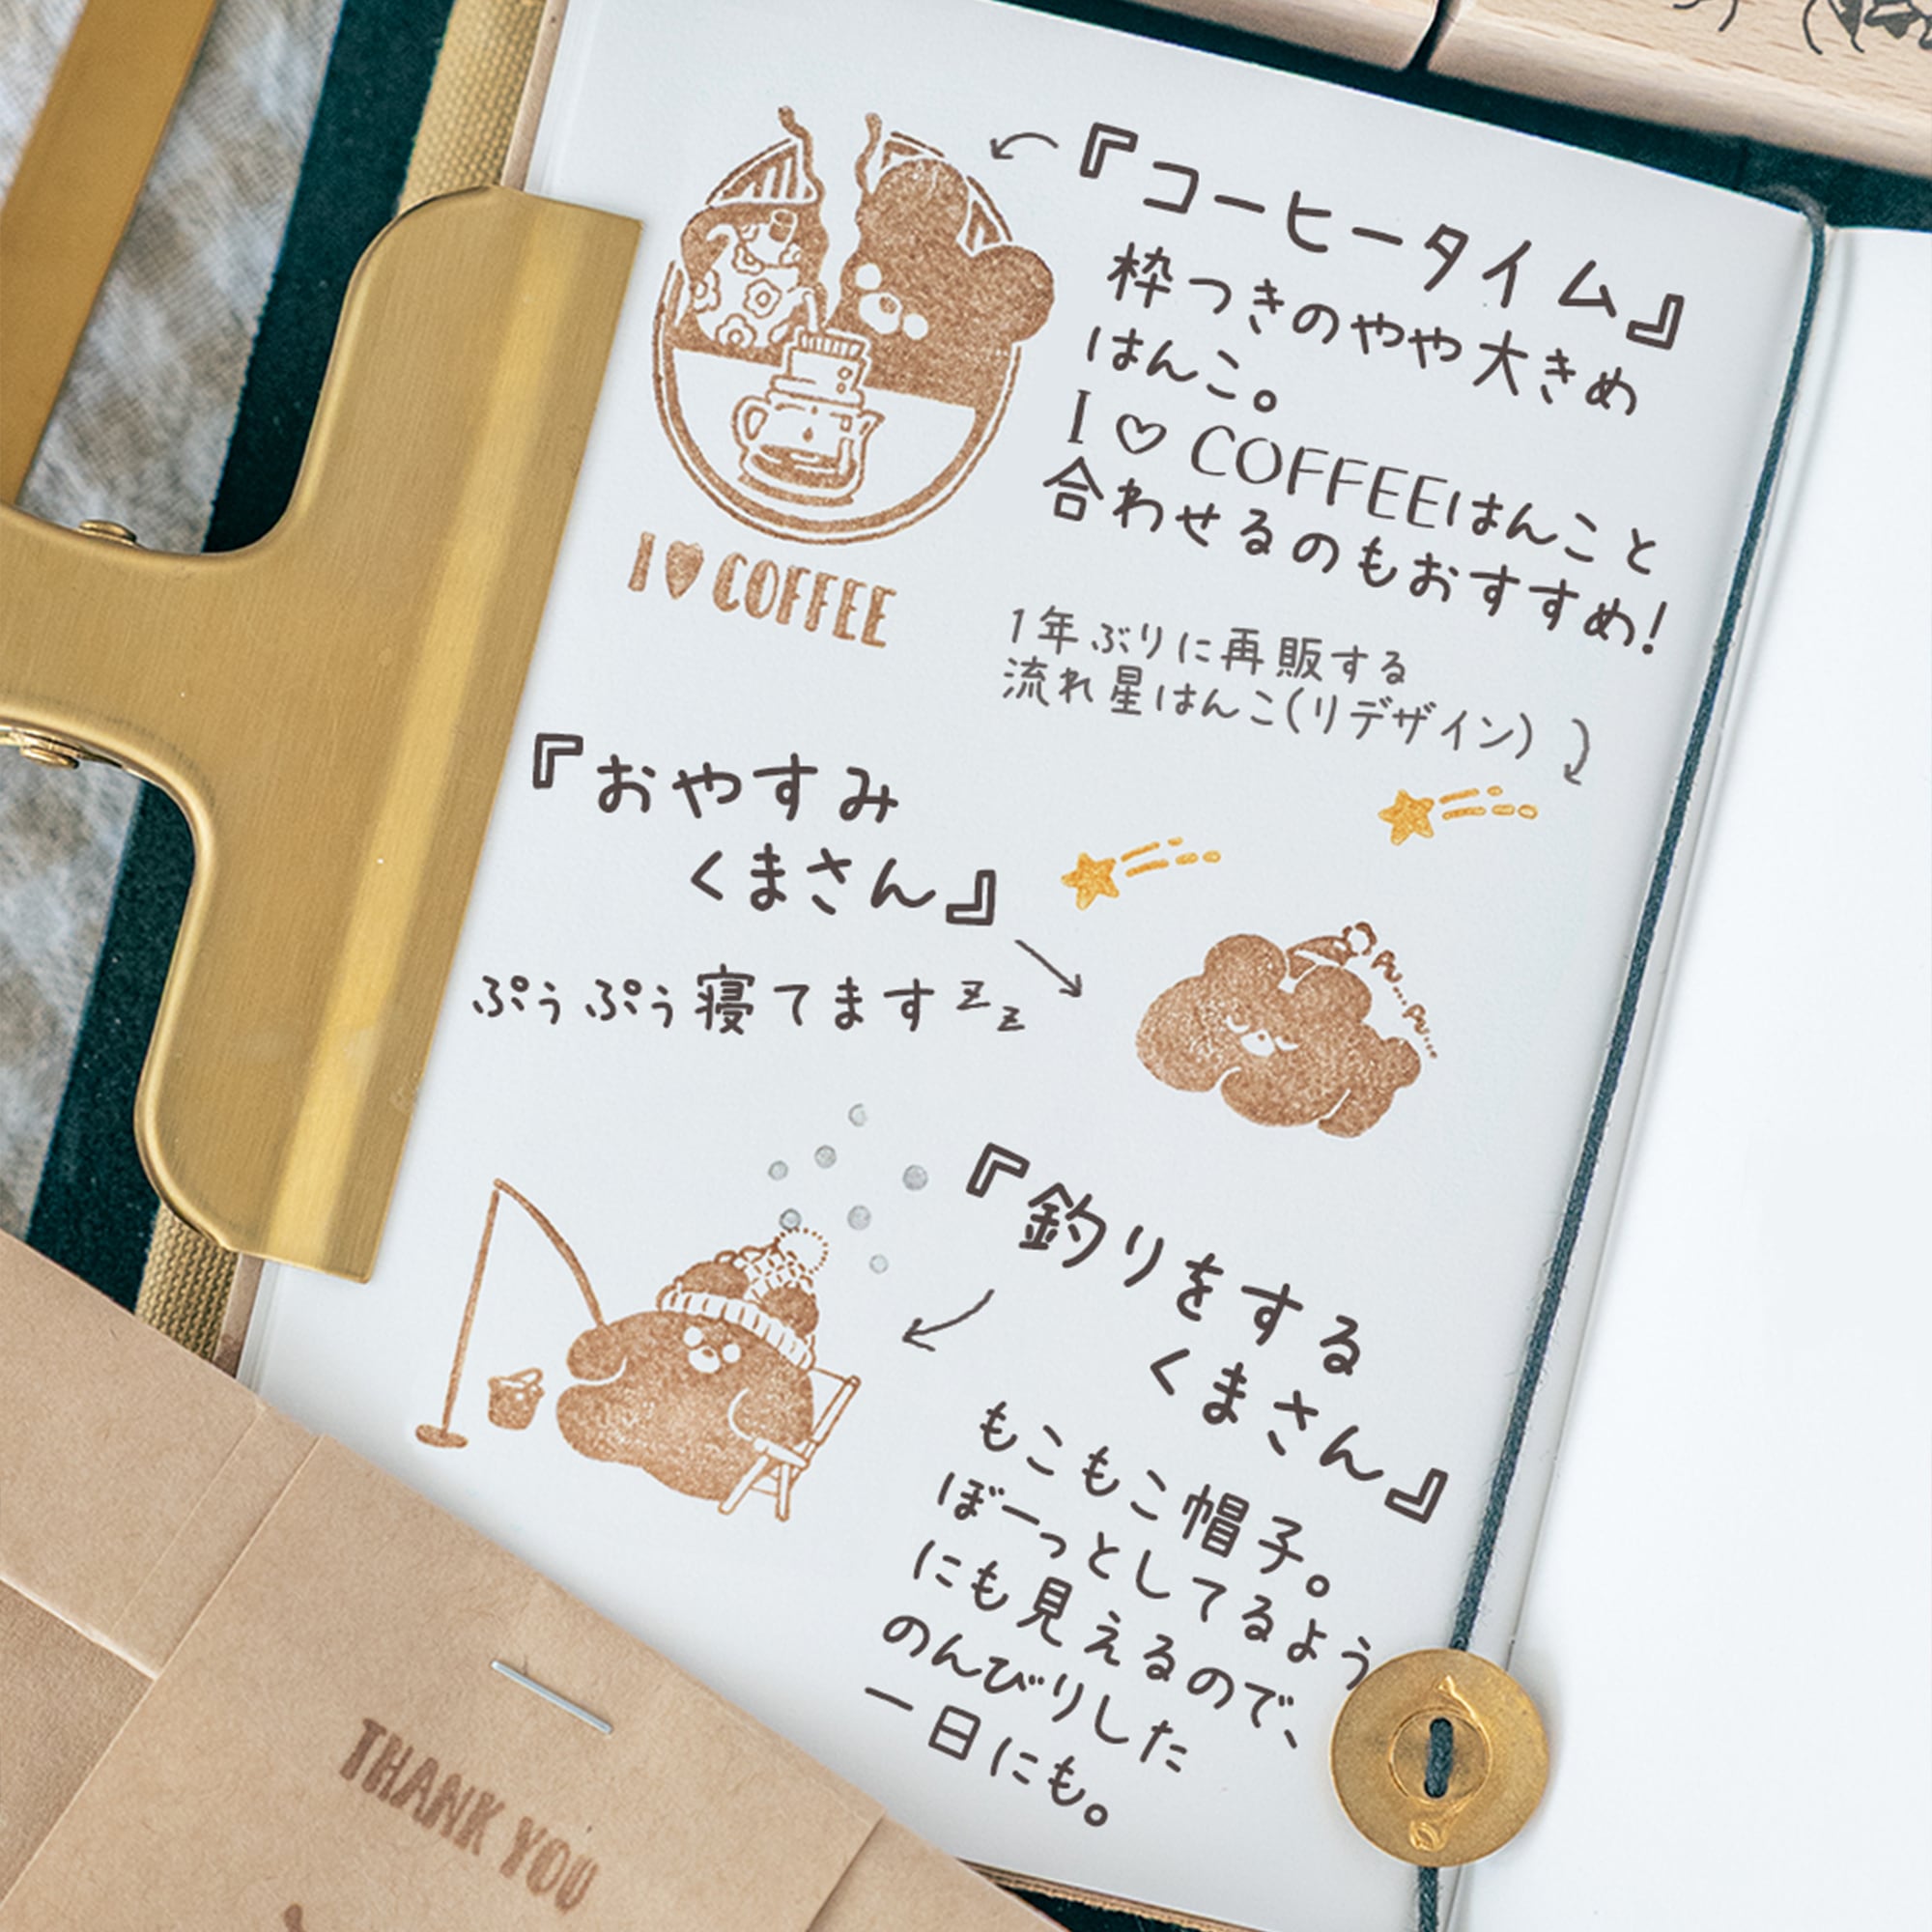 『コーヒータイム』
枠つきのやや大きめ
はんこ。
I ♡ COFFEEはんこと
合わせるのもおすすめ!
I ♥ COFFEE
1年ぶりに再販する
流れ星はんこ(リデザイン)
『おやすみ
くまさん』
ぷぅぷぅ寝てます zz
Pu...Pu...
『釣りをする
くまさん』
もこもこ帽子。
ぼーっとしてるよう
にも見えるので、
のんびりした
一日にも。
THANK YOU